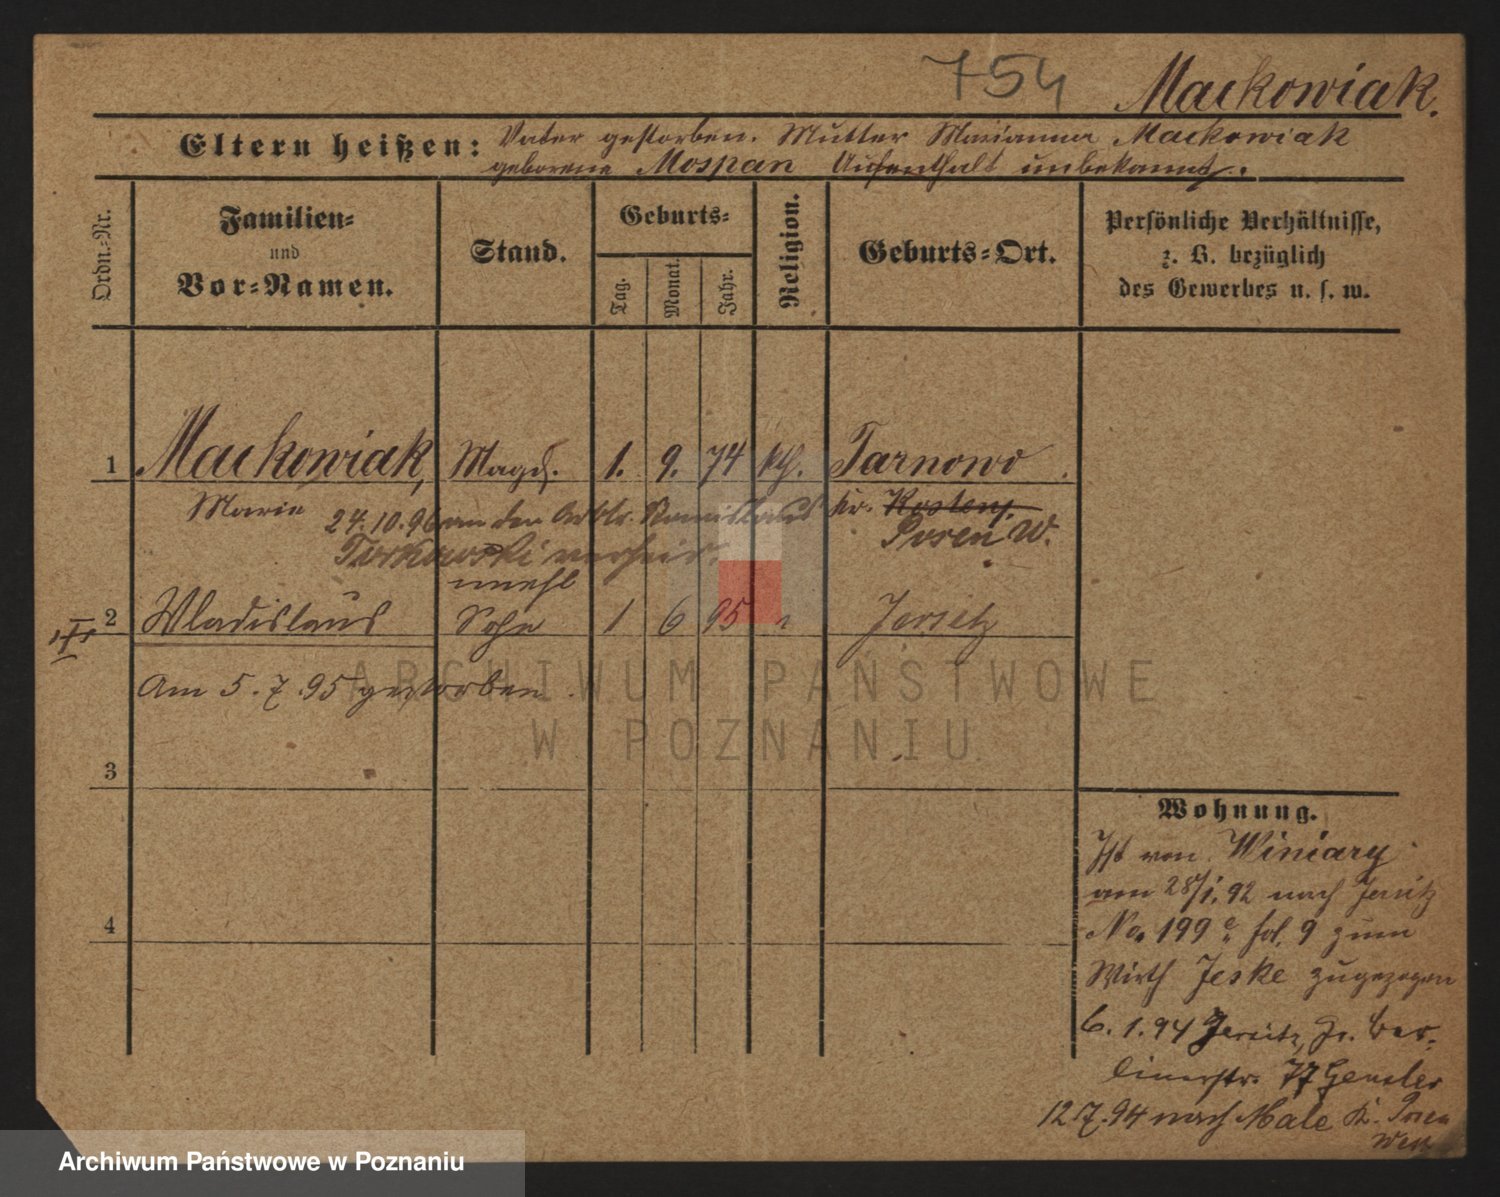 754 Mackowiak.
Eltern heißen: Vater gestorben. Mutter Marianna Mackowiak
geborene Mospan Aufenthalt unbekannt.
Ordn.-Nr.
Familien-
und
Vor-Namen.
Stand.
Geburts-
Tag.
Monat.
Jahr.
Religion.
Geburts-Ort.
Persönliche Verhältnisse,
z. B. bezüglich
des Gewerbes u. s. w.
1 Mackowiak, Magd. 1. 9. 74 kth. Tarnowo
Marie
24.10.96 an den Arbtr. Stanislaus
Kr. Kosten,
Posen W.
Turkowski verheir.
unehl
2 Wladislaus Sohn 1 6 95 " Jersitz
Am 5.7.95 gestorben.
3
4
Wohnung.
Ist von Winiary
am 28/1.92 nach Jersitz
No. 199 c fol. 9 zum
Wirth Jeske zugezogen
6.1.94 Jersitz, Gr. Ber-
linerstr. 77 Gensler
12.7.94 nach Male K. Posen
West
ARCHIWUM PAŃSTWOWE
W POZNANIU
Archiwum Państwowe w Poznaniu